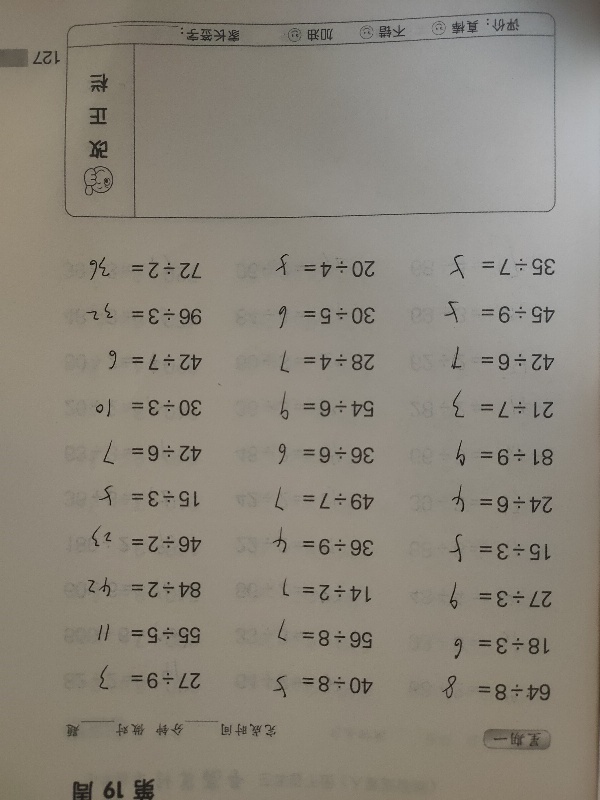 第 19 周
星期一
完成时间____分钟 做对____题
64÷8= 8 40÷8= 5 27÷9= 3
18÷3= 6 56÷8= 7 55÷5= 11
27÷3= 9 14÷2= 7 84÷2= 42
15÷3= 5 36÷9= 4 46÷2= 23
24÷6= 4 49÷7= 7 15÷3= 5
81÷9= 9 36÷6= 6 42÷6= 7
21÷7= 3 54÷6= 9 30÷3= 10
42÷6= 7 28÷4= 7 42÷7= 6
45÷9= 5 30÷5= 6 96÷3= 32
35÷7= 5 20÷4= 5 72÷2= 36
改正栏
评价：真棒 不错 加油 家长签字：
127